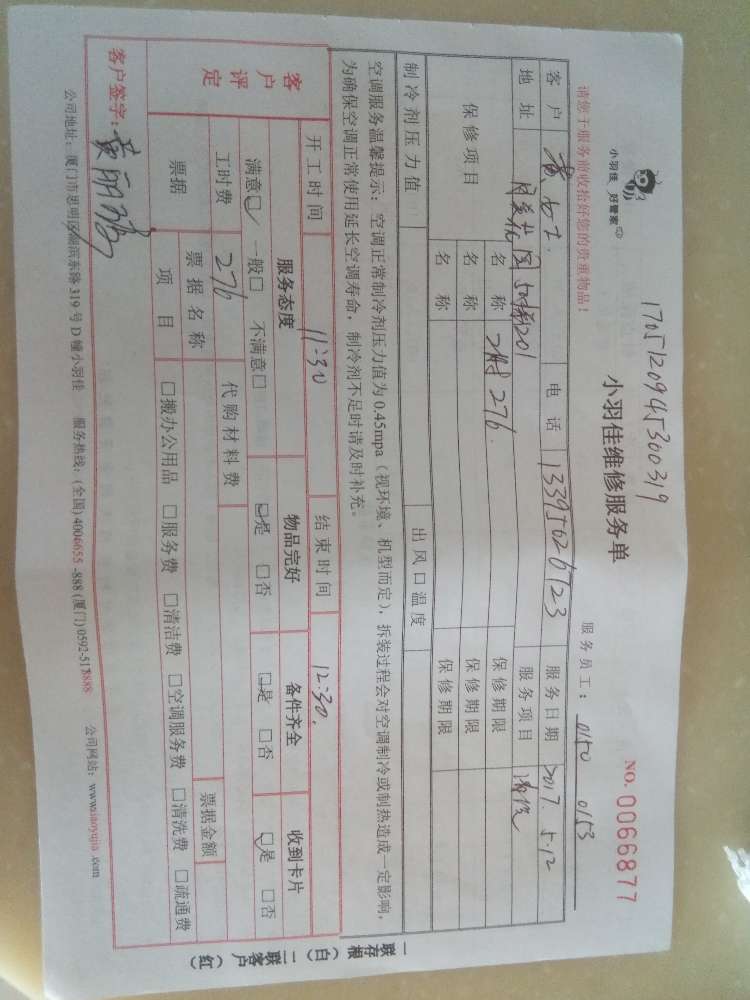 170512094530319
小羽佳 好管家
小羽佳维修服务单
NO. 0066877
请您于服务前收拾好您的贵重物品！
服务员工：0150 0153
客户 黄女士 电话 13395026723 服务日期 2017.5.12
地址 50栋201 服务项目 清洗
保修项目 名称 276. 保修期限
名称 保修期限
名称 保修期限
制冷剂压力值 出风口温度
空调服务温馨提示：空调正常制冷剂压力值为 0.45mpa（视环境、机型而定），拆装过程会对空调制冷或制热造成一定影响，
为确保空调正常使用延长空调寿命，制冷剂不足时请及时补充。
开工时间 11:30 结束时间 12:30.
客户评定 服务态度 物品完好 备件齐全 收到卡片
满意☑ 一般□ 不满意□ ☑是 □否 □是 □否 ☑是 □否
工时费 276 代购材料费
票据 票据名称 票据金额
项目 □搬办公用品 □服务费 □清洁费 □空调服务费 □清洗费 □疏通费
客户签字：黄丽
公司地址：厦门市思明区湖滨东路 319 号 D 幢小羽佳 服务热线：(全国) 4006655-888 (厦门) 0592-5178888 公司网站：www.xiaoyujia.com
一联存根（白）二联客户（红）